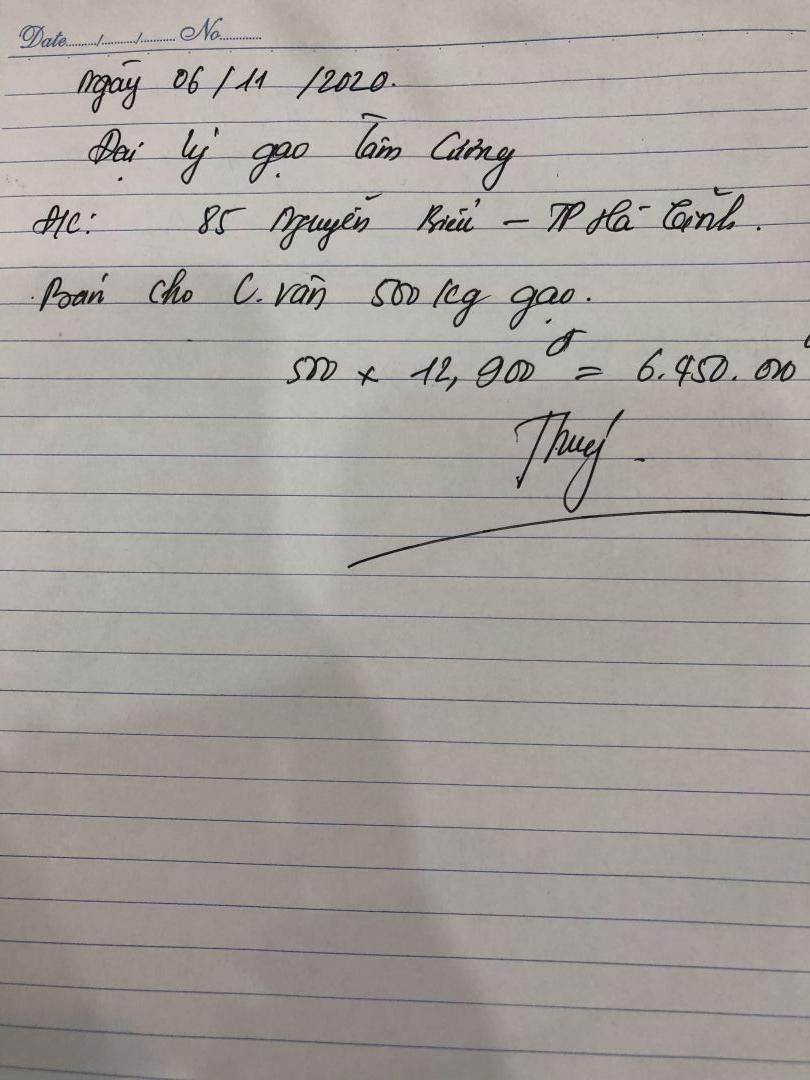 Date......./......../......... No............
Ngày 06/11/2020.
Đại lý gạo Tâm Cường
Đ/c: 85 Nguyễn Biểu - TP Hà Tĩnh.
Bán cho C. Vân 500 kg gạo.
500 x 12,900đ = 6.450.000đ
Thuý